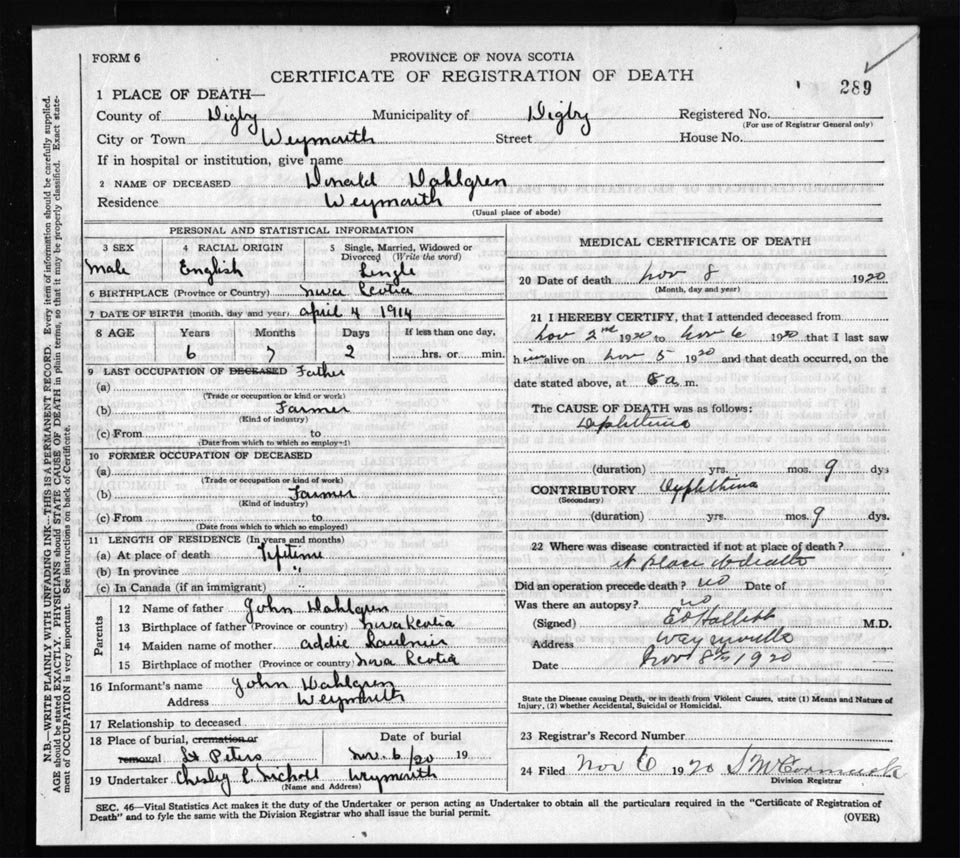 FORM 6
PROVINCE OF NOVA SCOTIA
CERTIFICATE OF REGISTRATION OF DEATH
289
1 PLACE OF DEATH—
County of Digby Municipality of Digby Registered No.
(For use of Registrar General only)
City or Town Weymouth Street House No.
If in hospital or institution, give name
2 NAME OF DECEASED Donald Dahlgren
Residence Weymouth
(Usual place of abode)
PERSONAL AND STATISTICAL INFORMATION
3 SEX 4 RACIAL ORIGIN 5 Single, Married, Widowed or
Divorced (Write the word)
Male English Single
6 BIRTHPLACE (Province or Country) Nova Scotia
7 DATE OF BIRTH (month, day and year) April 4 1914
8 AGE Years Months Days If less than one day,
6 7 2 hrs. or min.
9 LAST OCCUPATION OF DECEASED Father
(a)
(Trade or occupation or kind or work)
(b) Farmer
(Kind of industry)
(c) From to
(Date from which to which so employed)
10 FORMER OCCUPATION OF DECEASED
(a)
(Trade or occupation or kind of work)
(b) Farmer
(Kind of industry)
(c) From to
(Date from which to which so employed)
11 LENGTH OF RESIDENCE (In years and months)
(a) At place of death Lifetime
(b) In province "
(c) In Canada (if an immigrant) "
Parents
12 Name of father John Dahlgren
13 Birthplace of father (Province or country) Nova Scotia
14 Maiden name of mother Addie
15 Birthplace of mother (Province or country) Nova Scotia
16 Informant's name John Dahlgren
Address Weymouth
17 Relationship to deceased
18 Place of burial, cremation or Date of burial
removal St Peters Nov. 6/20 19
19 Undertaker Chesley C. Nicholl Weymouth
(Name and Address)
MEDICAL CERTIFICATE OF DEATH
20 Date of death Nov 8 1920
(Month, day and year)
21 I HEREBY CERTIFY, that I attended deceased from
Nov 2nd 1920 to Nov 6 1920 that I last saw
him alive on Nov 5 1920 and that death occurred, on the
date stated above, at a m.
The CAUSE OF DEATH was as follows:
(duration) yrs. mos. 9 dys
CONTRIBUTORY Diphtheria
(Secondary)
(duration) yrs. mos. 9 dys.
22 Where was disease contracted if not at place of death?
at place of death
Did an operation precede death? no Date of
Was there an autopsy? no
(Signed) M.D.
Address Weymouth
Date Nov 8th 1920
State the Disease causing Death, or in death from Violent Causes, state (1) Means and Nature of
Injury, (2) whether Accidental, Suicidal or Homicidal.
23 Registrar's Record Number
24 Filed Nov 6 1920 S McCormack
Division Registrar
SEC. 46—Vital Statistics Act makes it the duty of the Undertaker or person acting as Undertaker to obtain all the particulars required in the "Certificate of Registration of
Death" and to fyle the same with the Division Registrar who shall issue the burial permit.
(OVER)
N.B.—WRITE PLAINLY WITH UNFADING INK—THIS IS A PERMANENT RECORD. Every item of information should be carefully supplied.
AGE should be stated EXACTLY. PHYSICIANS should STATE CAUSE OF DEATH in plain terms, so that it may be properly classified. Exact state-
ment of OCCUPATION is very important. See instructions on back of Certificate.